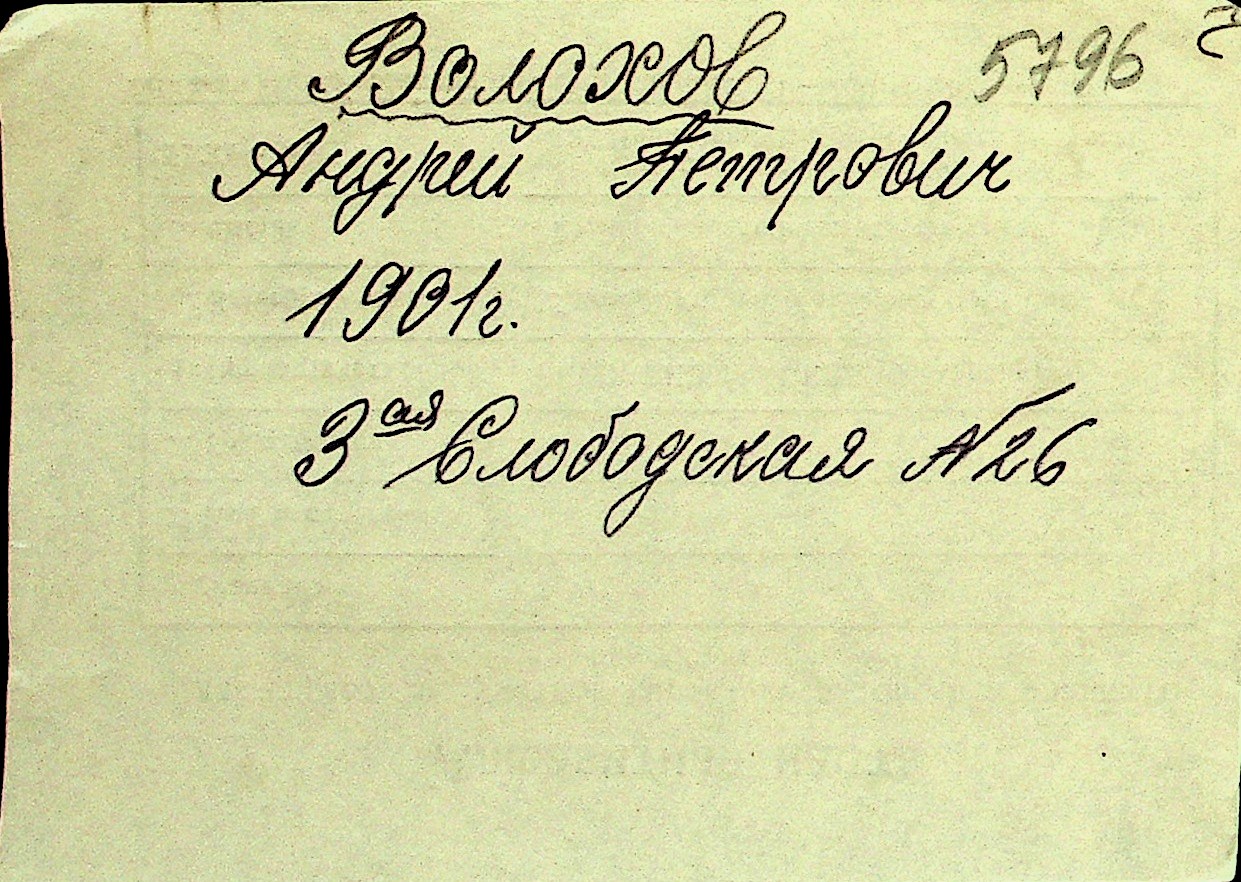 Волохов 5796
Андрей Петрович
1901г.
3ая Слободская №26